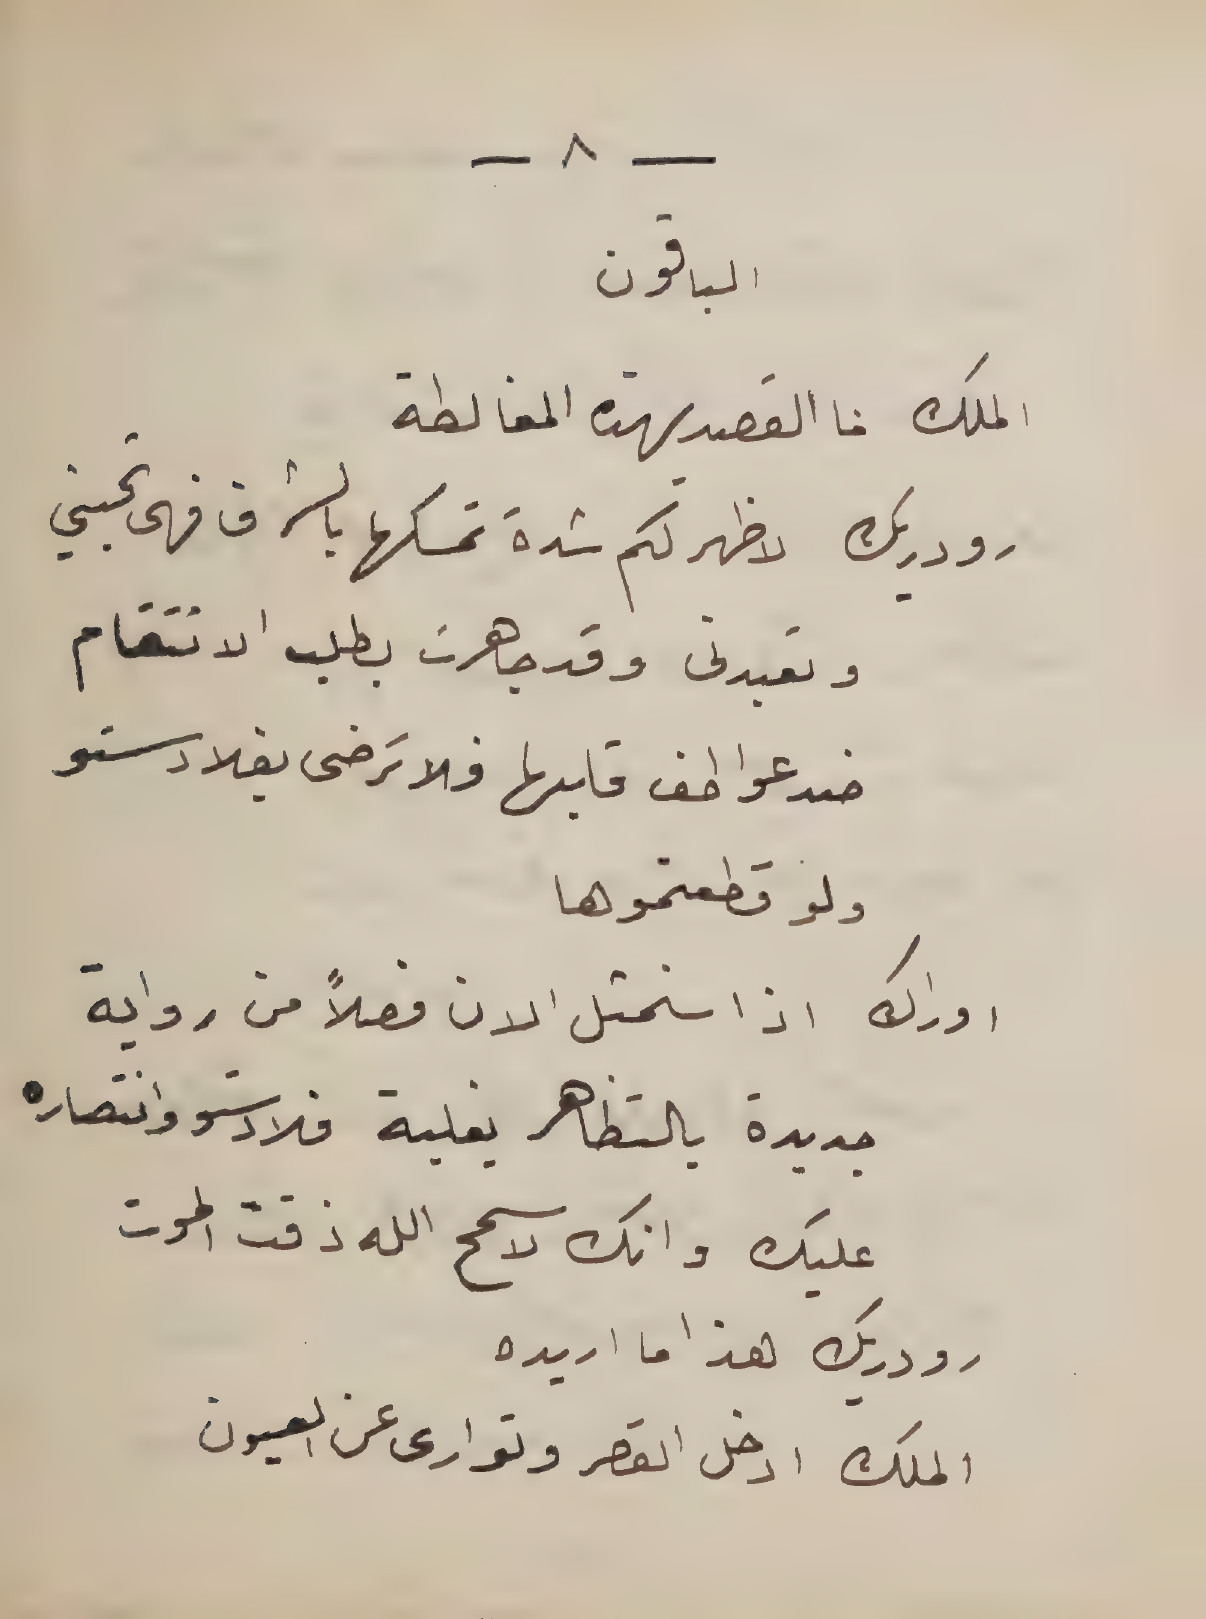 — ٨ —
الباقون
الملك فما القصد بهذه المغالطة
رودريك لاظهر لكم شدة تمسكها بالشرف فهى تحبني
وتعبدنى وقد جاهرت بطلب الانتقام
ضد عواطف قلبها فلا ترضى بغلادستو
ولو قطعتموها
اوراك اذا سنمثل الان فصلاً من رواية
جديدة بالتظاهر بغلبة فلادستو وانتصاره
عليك وانك لا سمح الله ذقت الموت
رودريك هذا ما اريده
الملك ادخل القصر وتوارى عن العيون